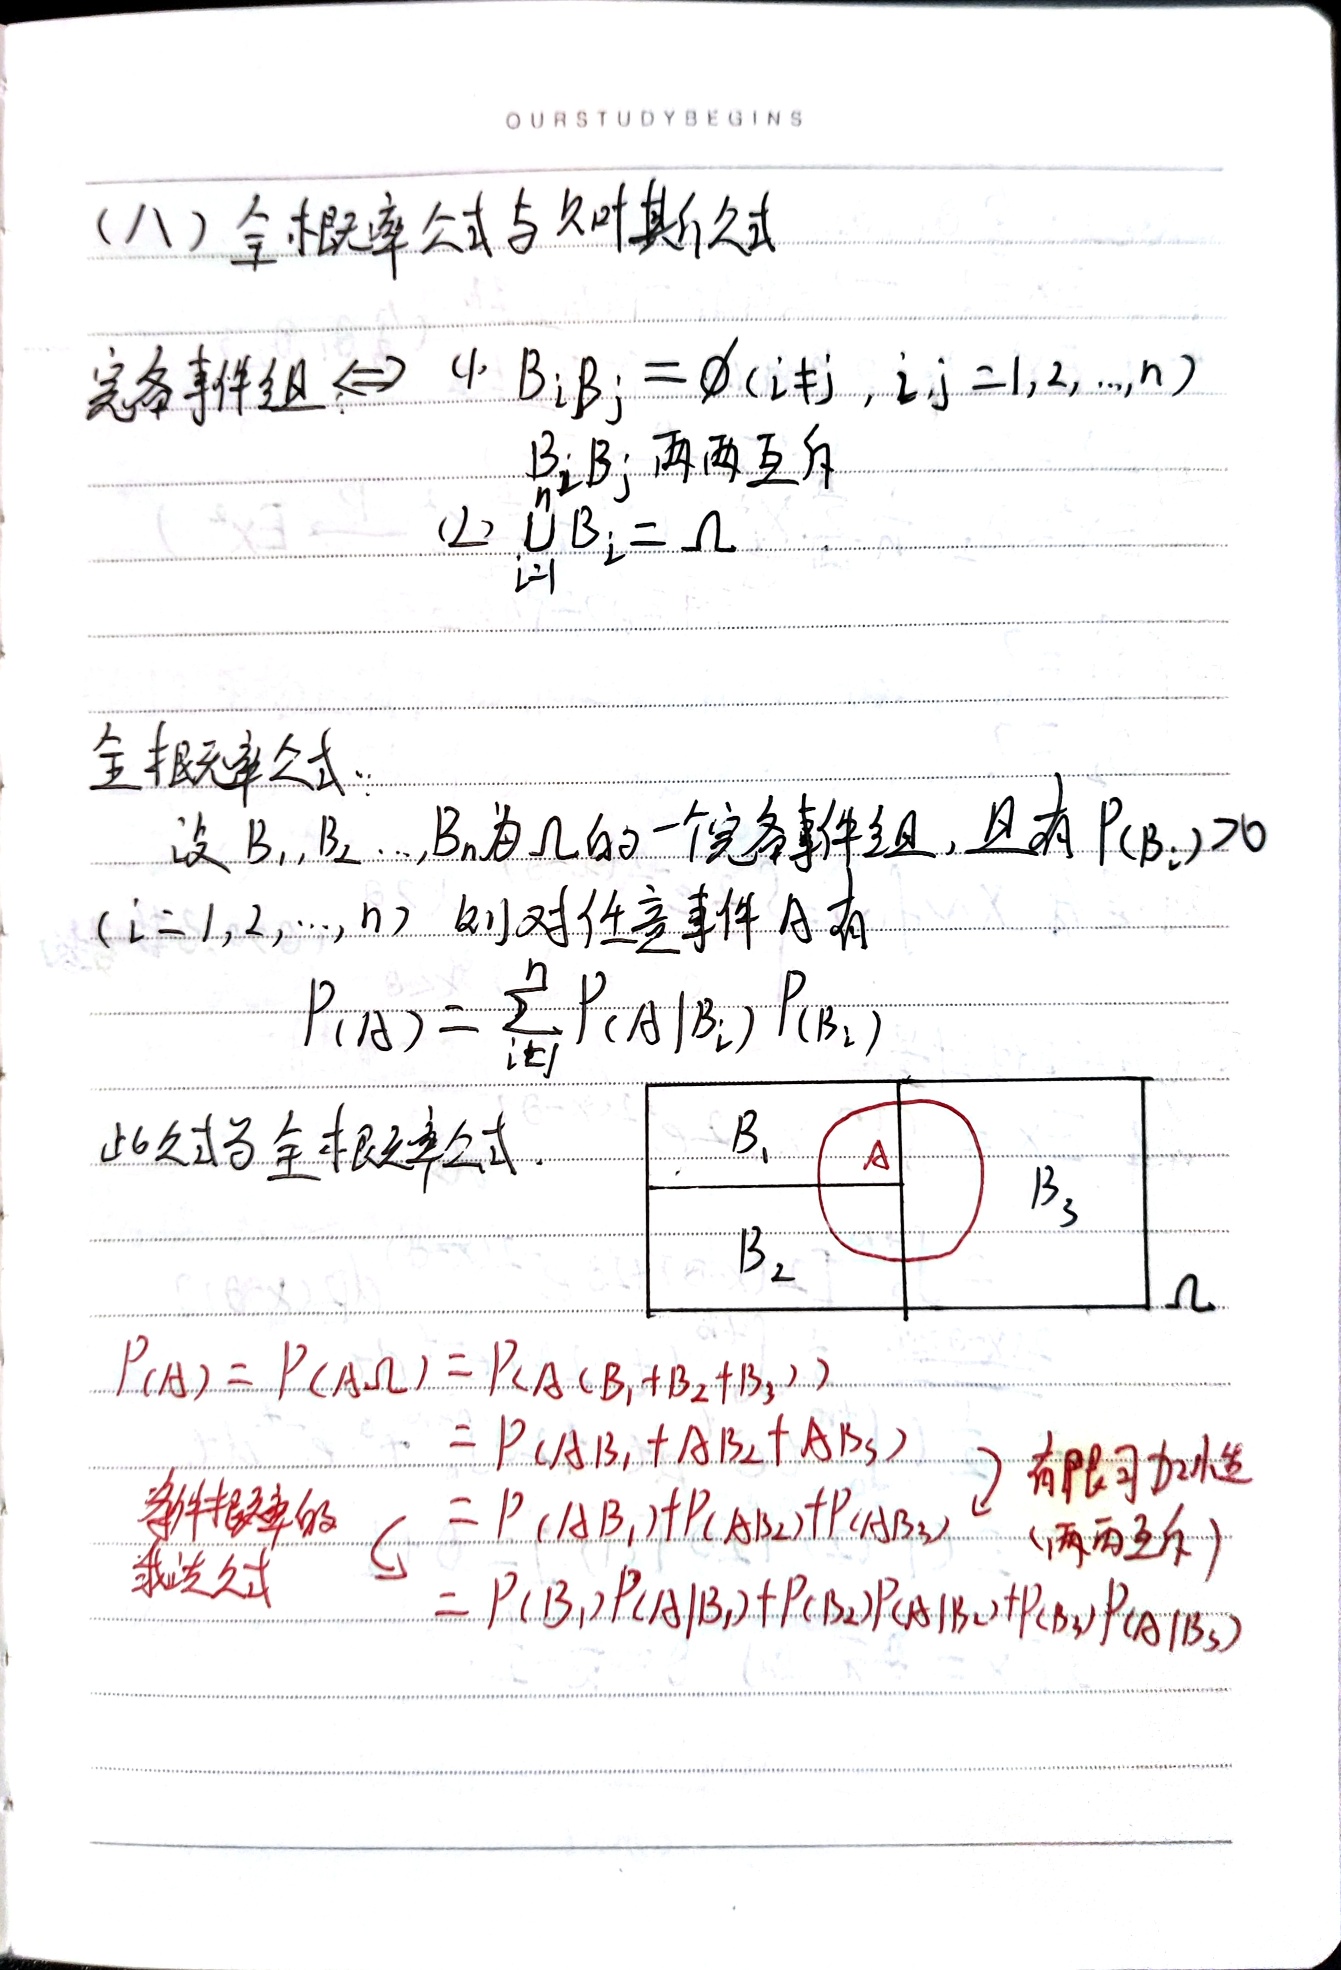 OURSTUDYBEGINS
(八) 全概率公式与贝叶斯公式
完备事件组 ⇔ (1) BiBj = ∅ (i≠j, i,j = 1,2,...,n)
BiBj 两两互斥
(2) ⋃_{i=1}^{n} Bi = Ω
全概率公式:
设 B₁, B₂ ..., Bn为Ω的一个完备事件组, 且有 P(Bi)>0
(i=1,2,...,n) 则对任意事件A有
P(A) = ∑_{i=1}^{n} P(A|Bi) P(Bi)
此公式为全概率公式.
B₁
A
B₃
B₂
Ω
P(A) = P(AΩ) = P(A(B₁+B₂+B₃))
= P(AB₁+AB₂+AB₃)
有限可加性
条件概率的
= P(AB₁)+P(AB₂)+P(AB₃)
(两两互斥)
乘法公式
= P(B₁)P(A|B₁)+P(B₂)P(A|B₂)+P(B₃)P(A|B₃)